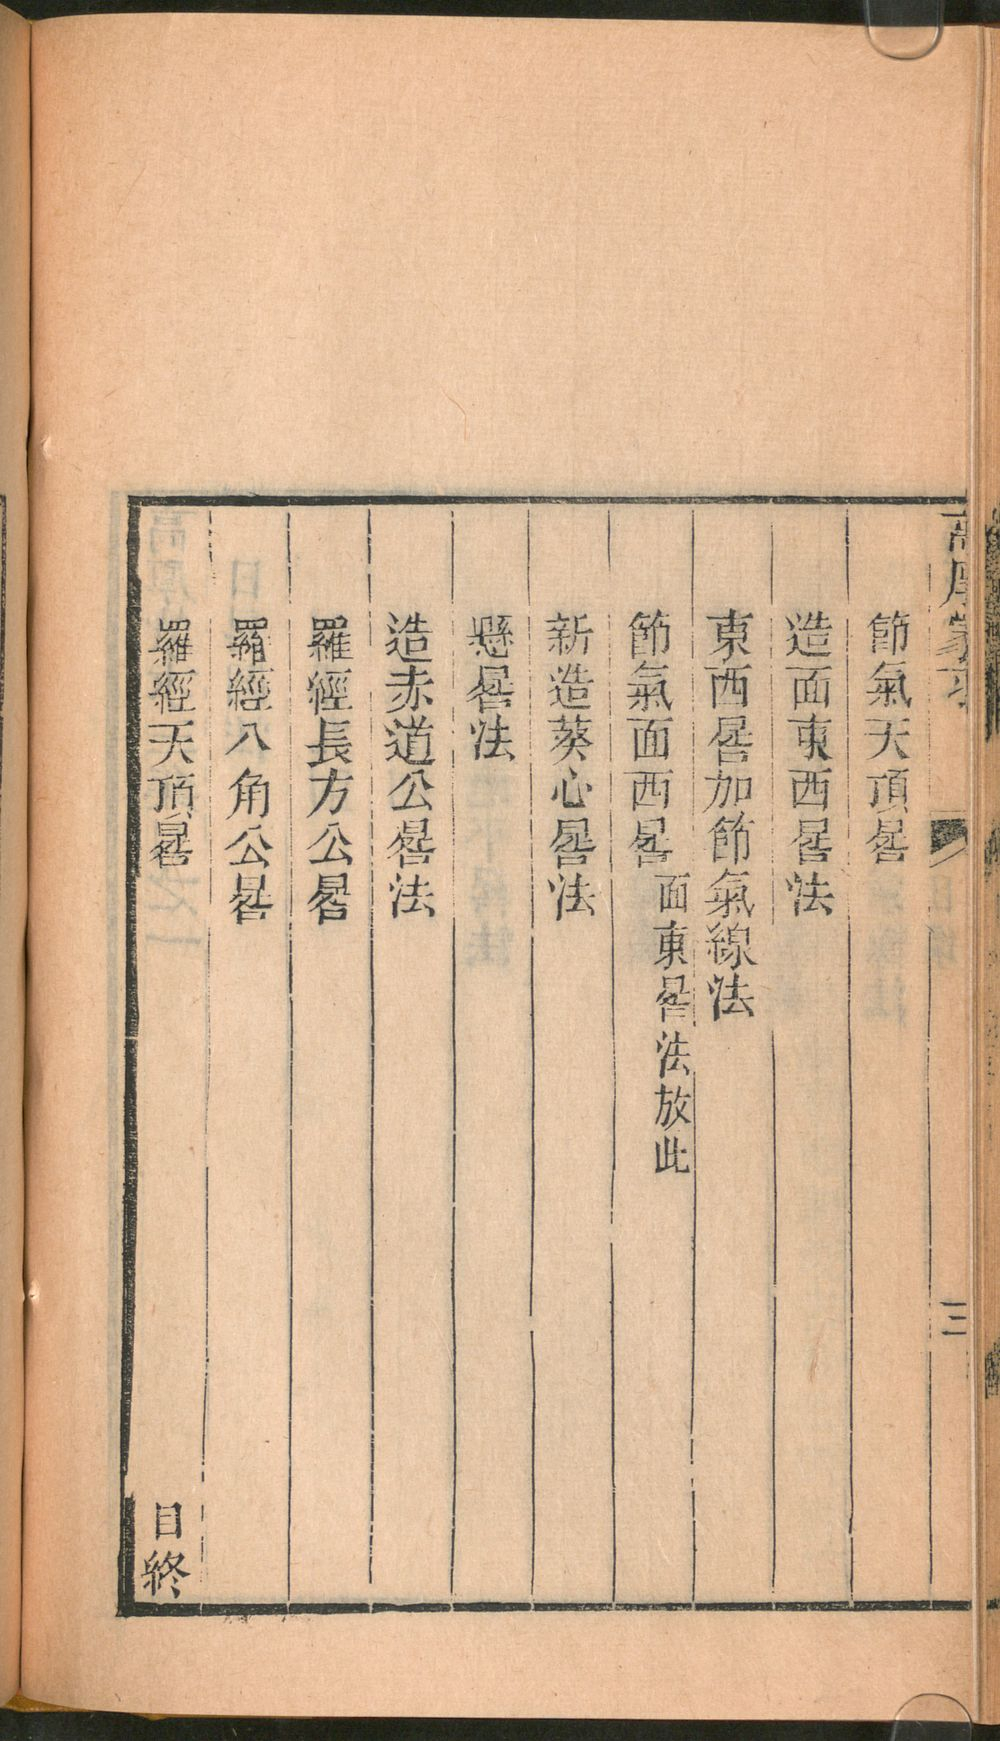 節氣天頂晷
造面東西晷法
東西晷加節氣線法
節氣面西晷面東晷法放此
新造葵心晷法
懸晷法
造赤道公晷法
羅經長方公晷
羅經八角公晷
羅經天頂晷
目終